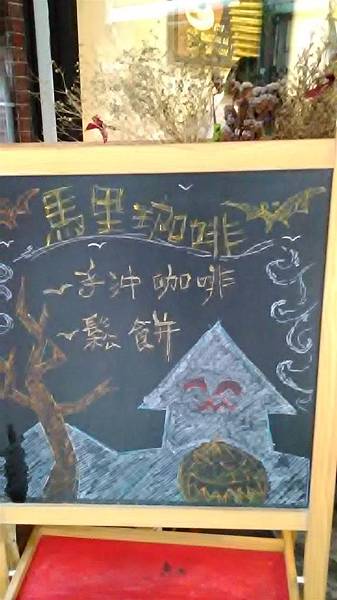 馬里珈啡
手沖咖啡
鬆餅